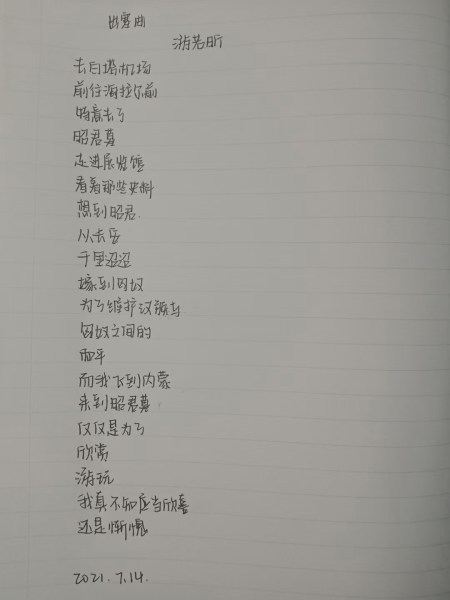 出塞曲
游若昕
去白塔机场
前往海拉尔前
特意去了
昭君墓
走进展览馆
看着那些史料
想到昭君
从长安
千里迢迢
嫁到匈奴
为了维护汉族与
匈奴之间的
和平
而我飞到内蒙
来到昭君墓
仅仅是为了
欣赏
游玩
我真不知应当欣喜
还是惭愧
2021.7.14.